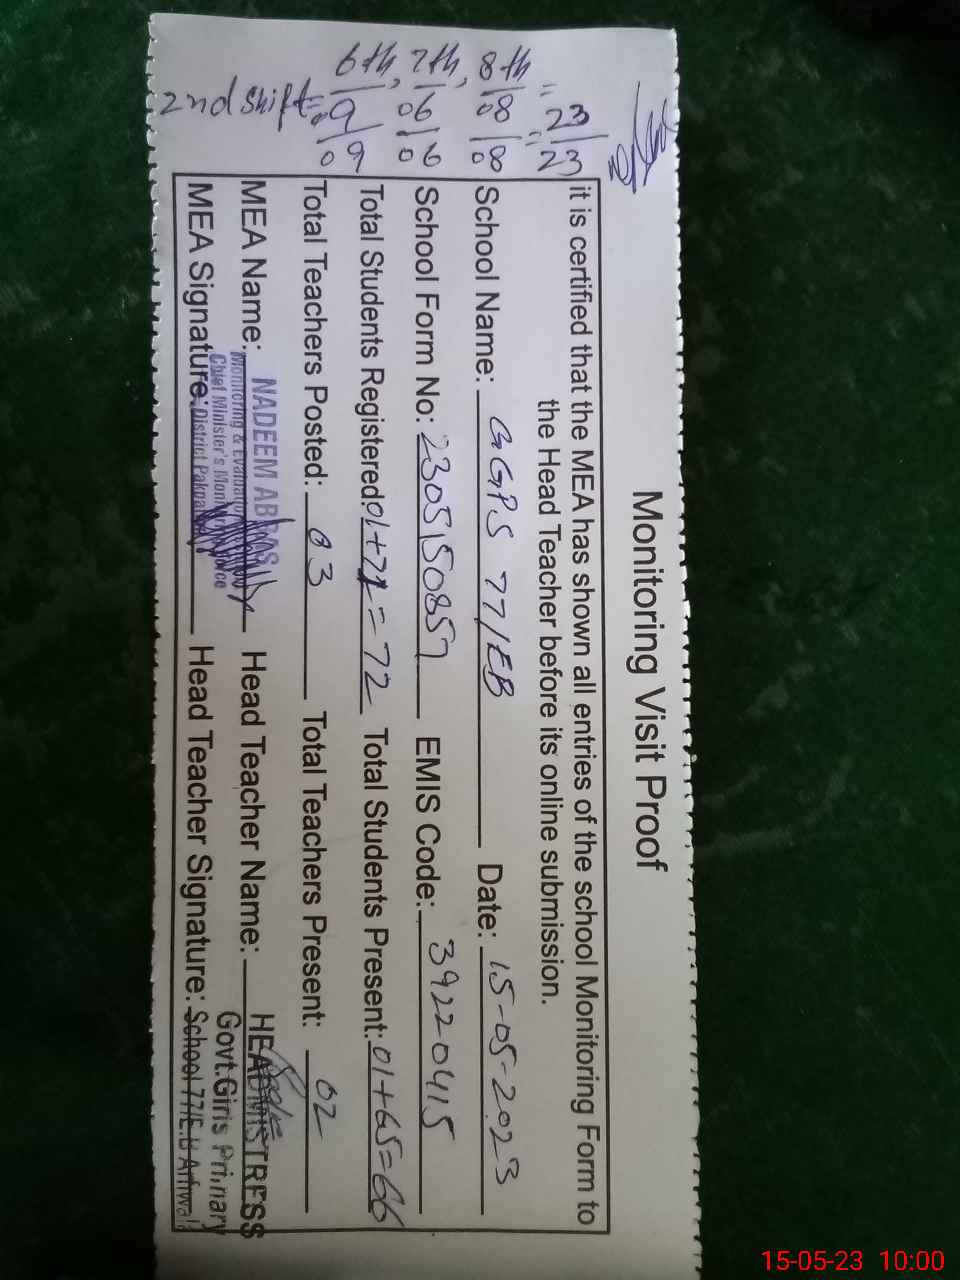 6th, 7th, 8th =
2nd shift = 09/ 06/ 08/ 23/
09 06 08 = 23
Monitoring Visit Proof
it is certified that the MEA has shown all entries of the school Monitoring Form to
the Head Teacher before its online submission.
School Name: GGPS 77/EB Date: 15-05-2023
School Form No: 2305150857 EMIS Code: 39220415
Total Students Registered: 01+71=72 Total Students Present: 01+65=66
Total Teachers Posted: 03 Total Teachers Present: 02
MEA Name: NADEEM ABBAS Head Teacher Name: HEADMISTRESS
Monitoring & Govt.Girls Primary
Chief Minister's
MEA Signature: District Head Teacher Signature: School 77/E.B Arifwala
15-05-23 10:00